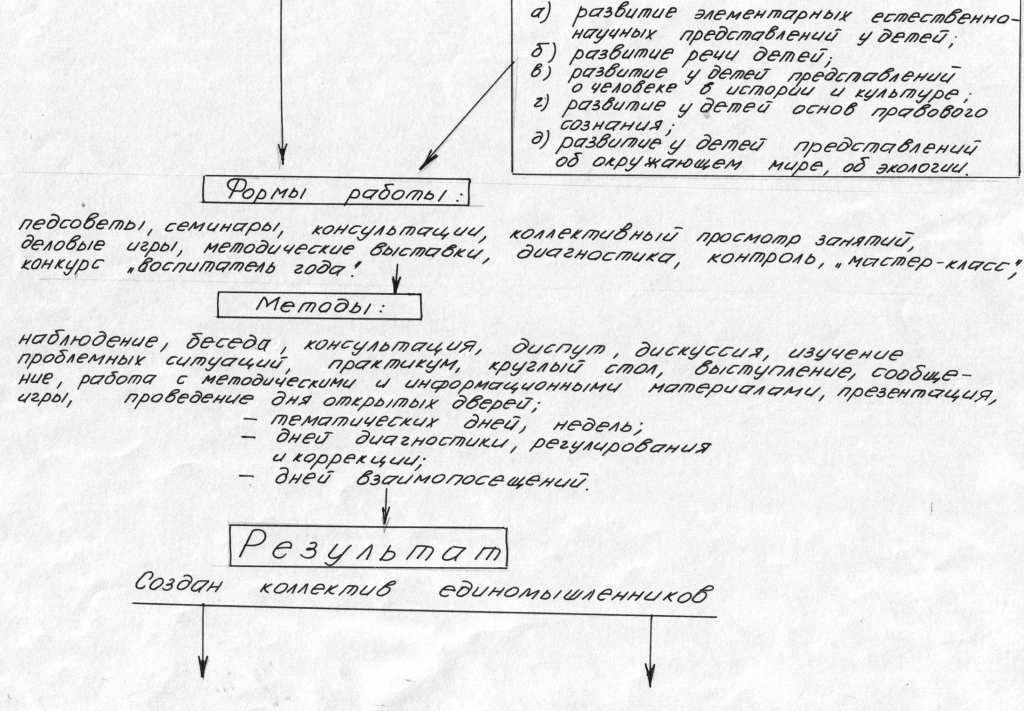 а) развитие элементарных естественно-
научных представлений у детей;
б) развитие речи детей;
в) развитие у детей представлений
о человеке в истории и культуре;
г) развитие у детей основ правового
сознания;
д) развитие у детей представлений
об окружающем мире, об экологии.
Формы работы:
педсоветы, семинары, консультации, коллективный просмотр занятий,
деловые игры, методические выставки, диагностика, контроль, „мастер-класс",
конкурс „воспитатель года".
Методы:
наблюдение, беседа, консультация, диспут, дискуссия, изучение
проблемных ситуаций, практикум, круглый стол, выступление, сообще-
ние, работа с методическими и информационными материалами, презентация,
игры, проведение дня открытых дверей;
– тематических дней, недель;
– дней диагностики, регулирования
и коррекции;
– дней взаимопосещений.
Результат
Создан коллектив единомышленников